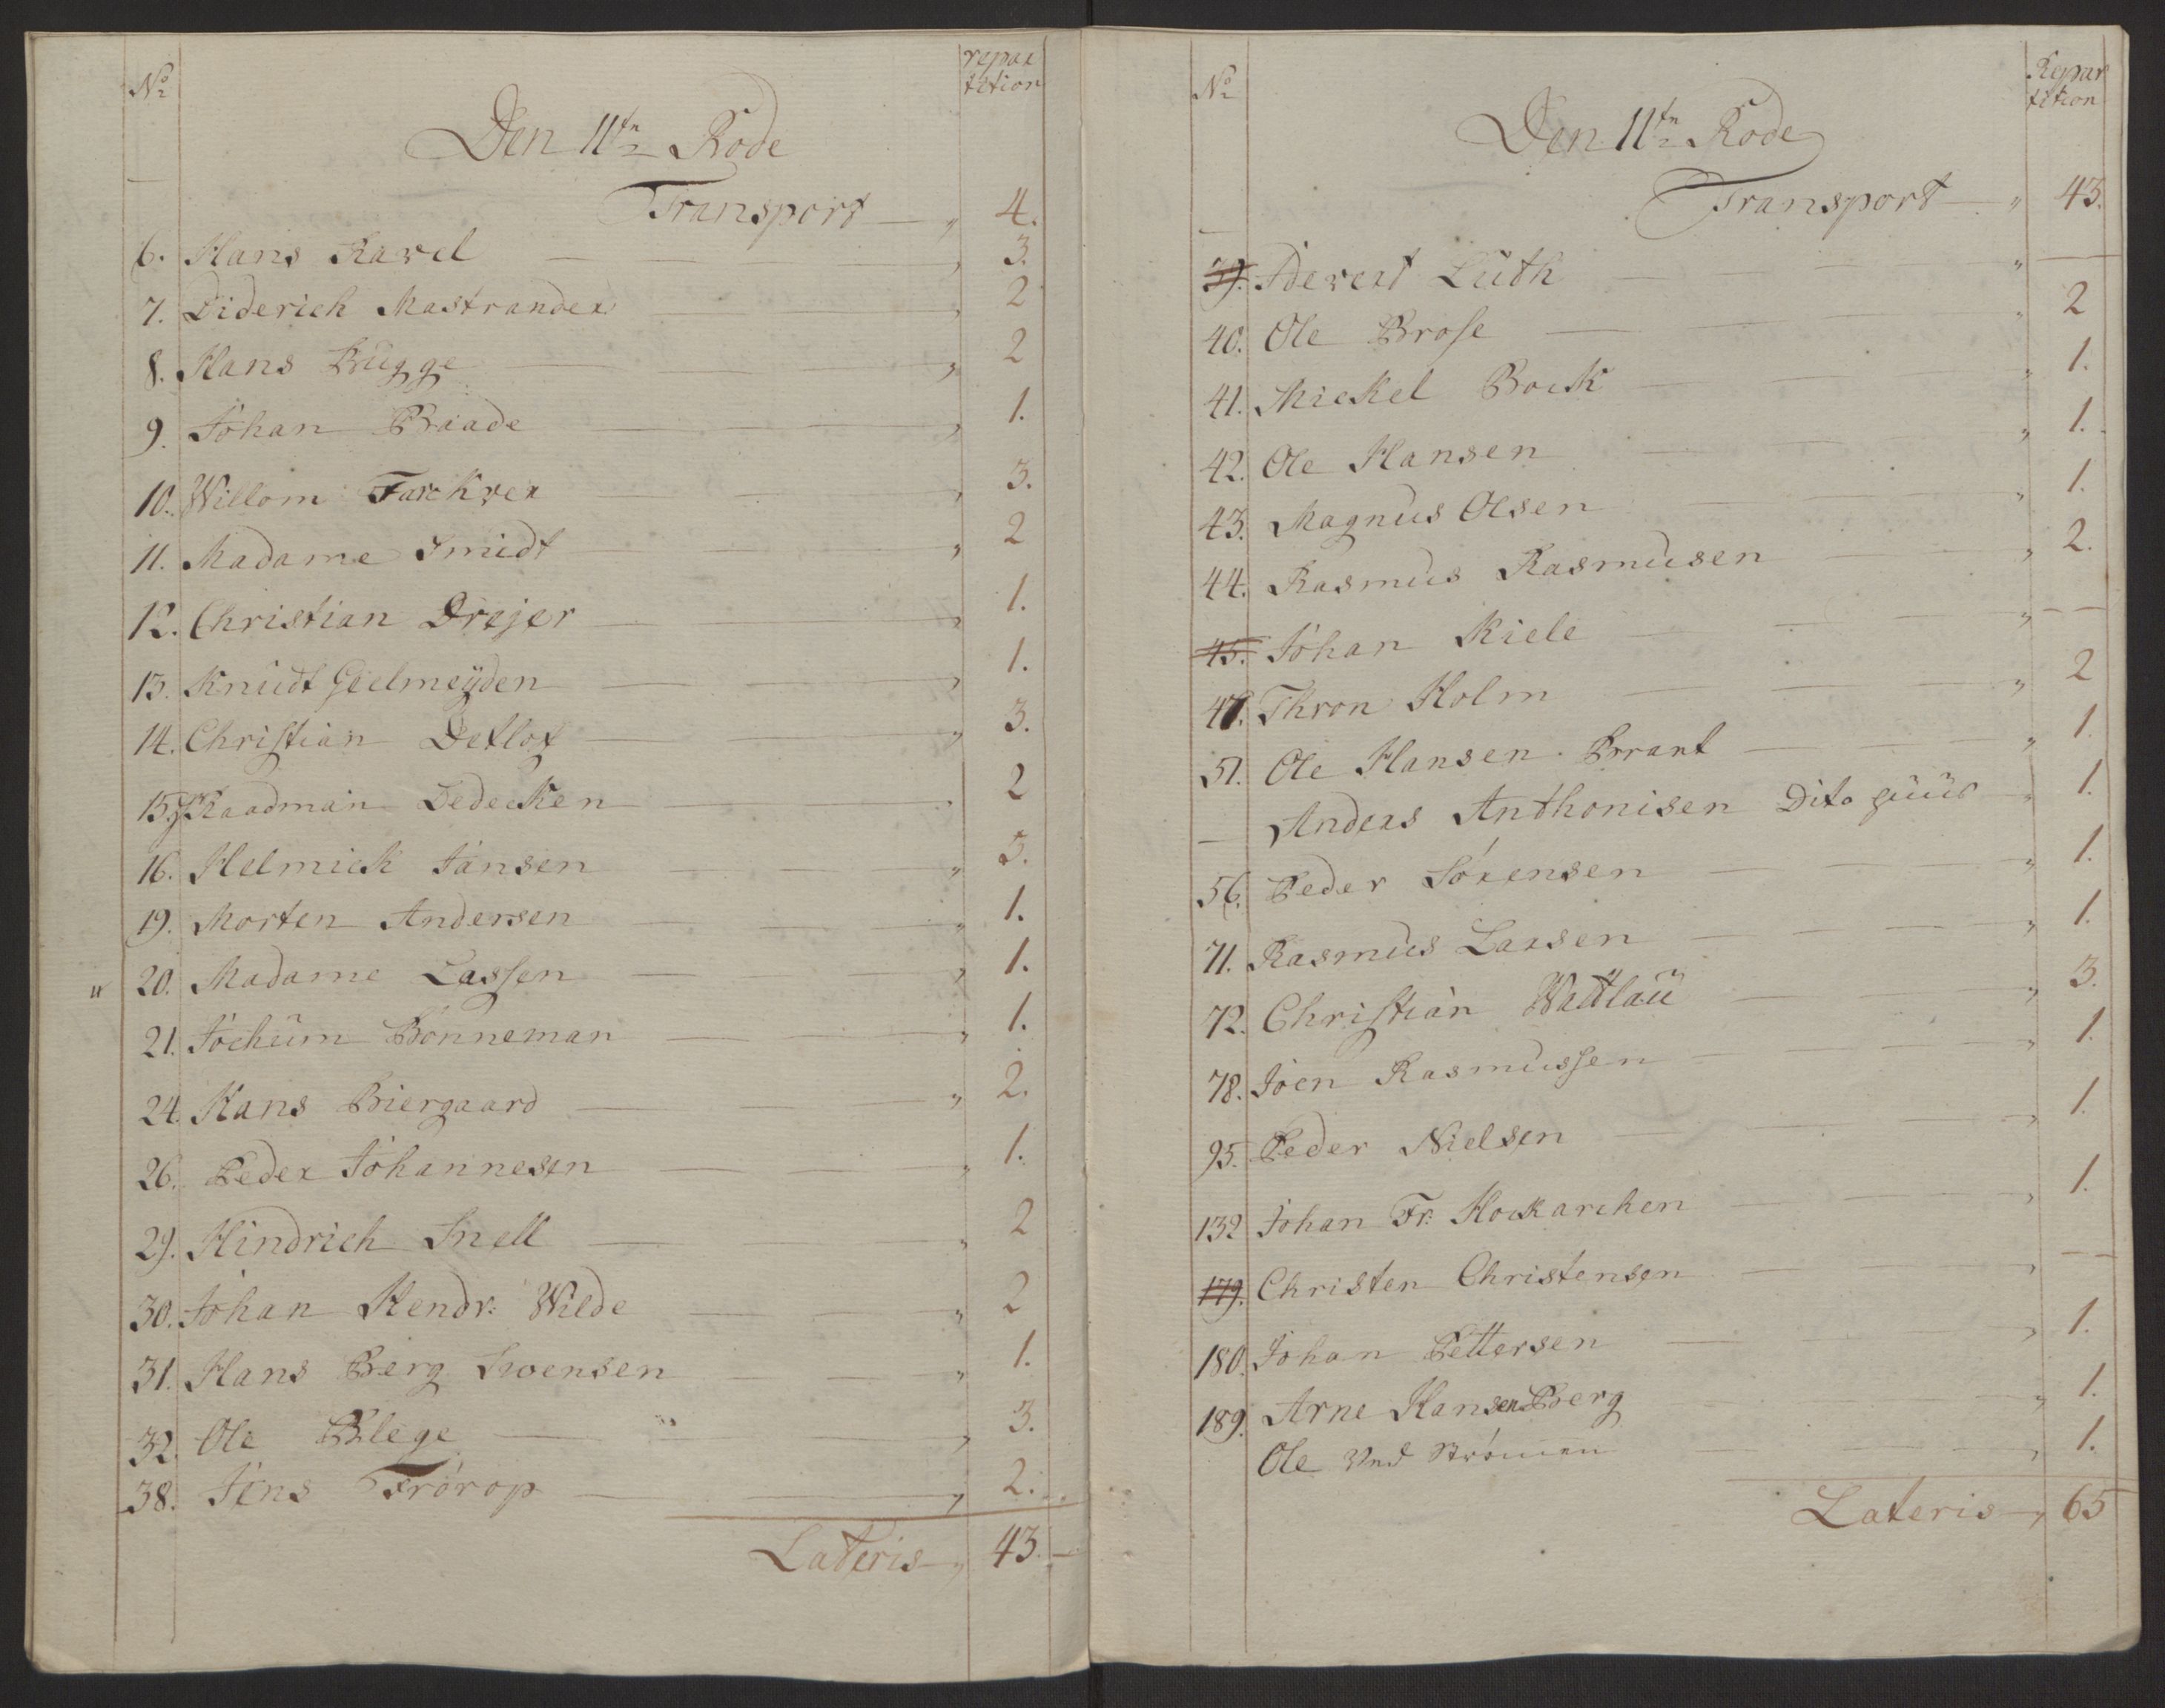 No
repar
tition
Den 11te Rode
Transport — " 4.
6. Hans Ravel — " 3.
7. Diderich Mastrander — " 2
8. Hans Bugge — " 2
9. Johan Braade — " 1.
10. Willom — " 3.
11. Madame Smidt — " 2
12. Christian Drejer — " 1.
13. Knudt Gielmeÿden — " 1.
14. Christian Detlof — " 3.
15. Raadman Dedecken — " 2
16. Helmick Jansen — " 3.
19. Morten Andersen — " 1.
" 20. Madame Lassen — " 1.
21. Jochum Bonneman — " 1.
24. Hans Biergaard — " 2.
26. Peder Johannesen — " 1.
29. Hindrich Snell — " 2
30. Johan Hendr: Wilde — " 2
31. Hans Berg Swensen — " 1.
32. Ole Blege — " 3.
38. Jens Frörop — " 2.
Lateris — " 43. —
No
Repar
tition
Den 11te Rode
Transport — " 43.
39. Luth — " —
40. Ole Brose — " 2
41. Mickel Bock — " 1.
42. Ole Hansen — " 1.
43. Magnus Olsen — " 1.
44. Rasmus Rasmusen — " 2.
45. Johan Kiele — " — —
47. Thron Holm — " 2
51. Ole Hansen Brrant — " 1.
— Anders Anthonisen Dito — " 1.
56. Peder Sörensen — " 1.
71. Rasmus Larsen — " 1.
72. Christian Wattlau — " 3.
78. Joen Rasmussen — " 1.
95. Peder Nielsen — " 1.
132 Johan Fr. Hockarchen — " 1.
179. Christen Christensen — " — —
180. Johan Pettersen — " 1.
189. Arne Hansen Berg — " 1.
Ole Ved Strömen — " 1.
Lateris — " 65